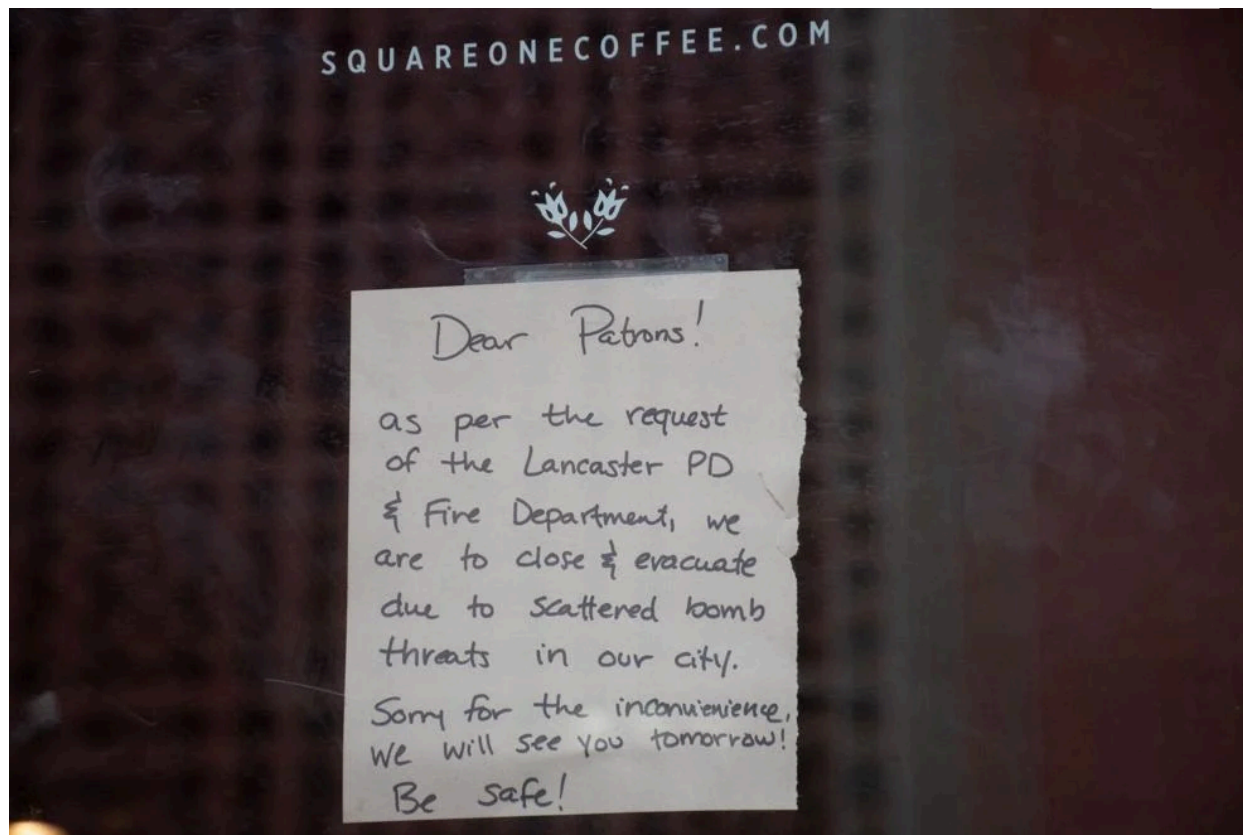 SQUAREONECOFFEE.COM
Dear Patrons!
as per the request
of the Lancaster PD
& Fire Department, we
are to close & evacuate
due to scattered bomb
threats in our city.
Sorry for the inconvienience,
we will see you tomorrow!
Be safe!